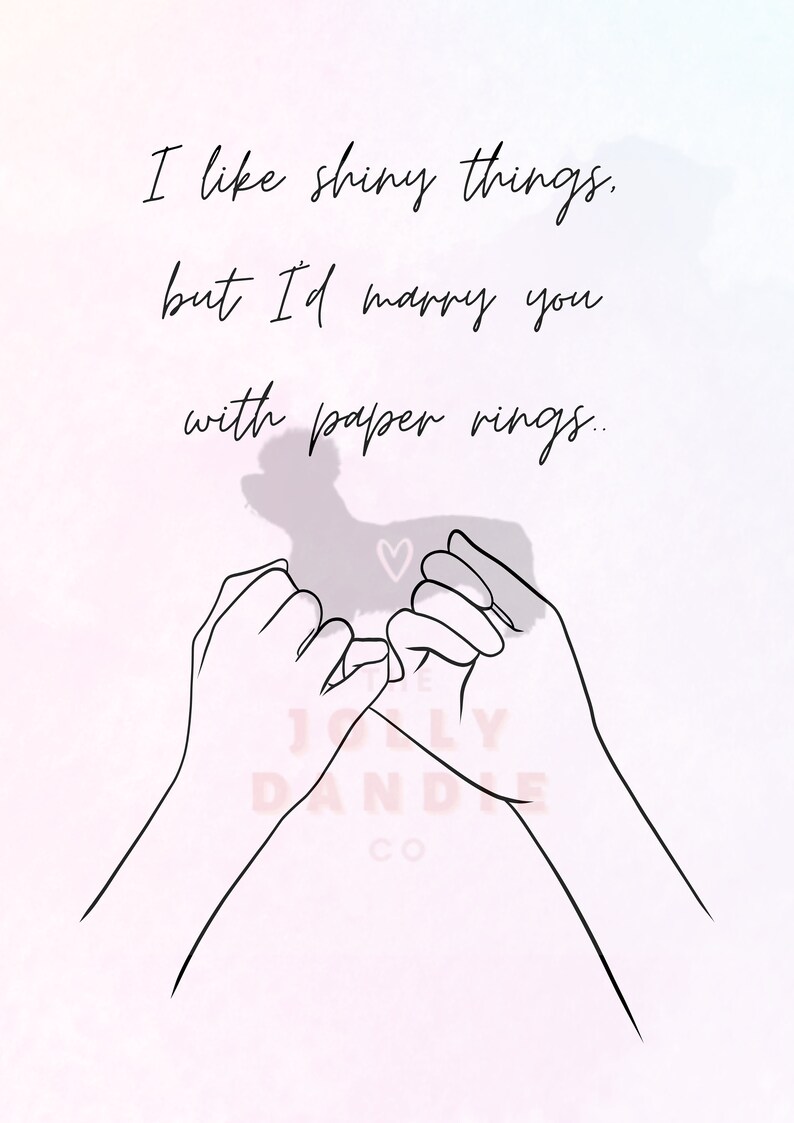 I like shiny things,
but I'd marry you
with paper rings..
THE
JOLLY
DANDIE
CO